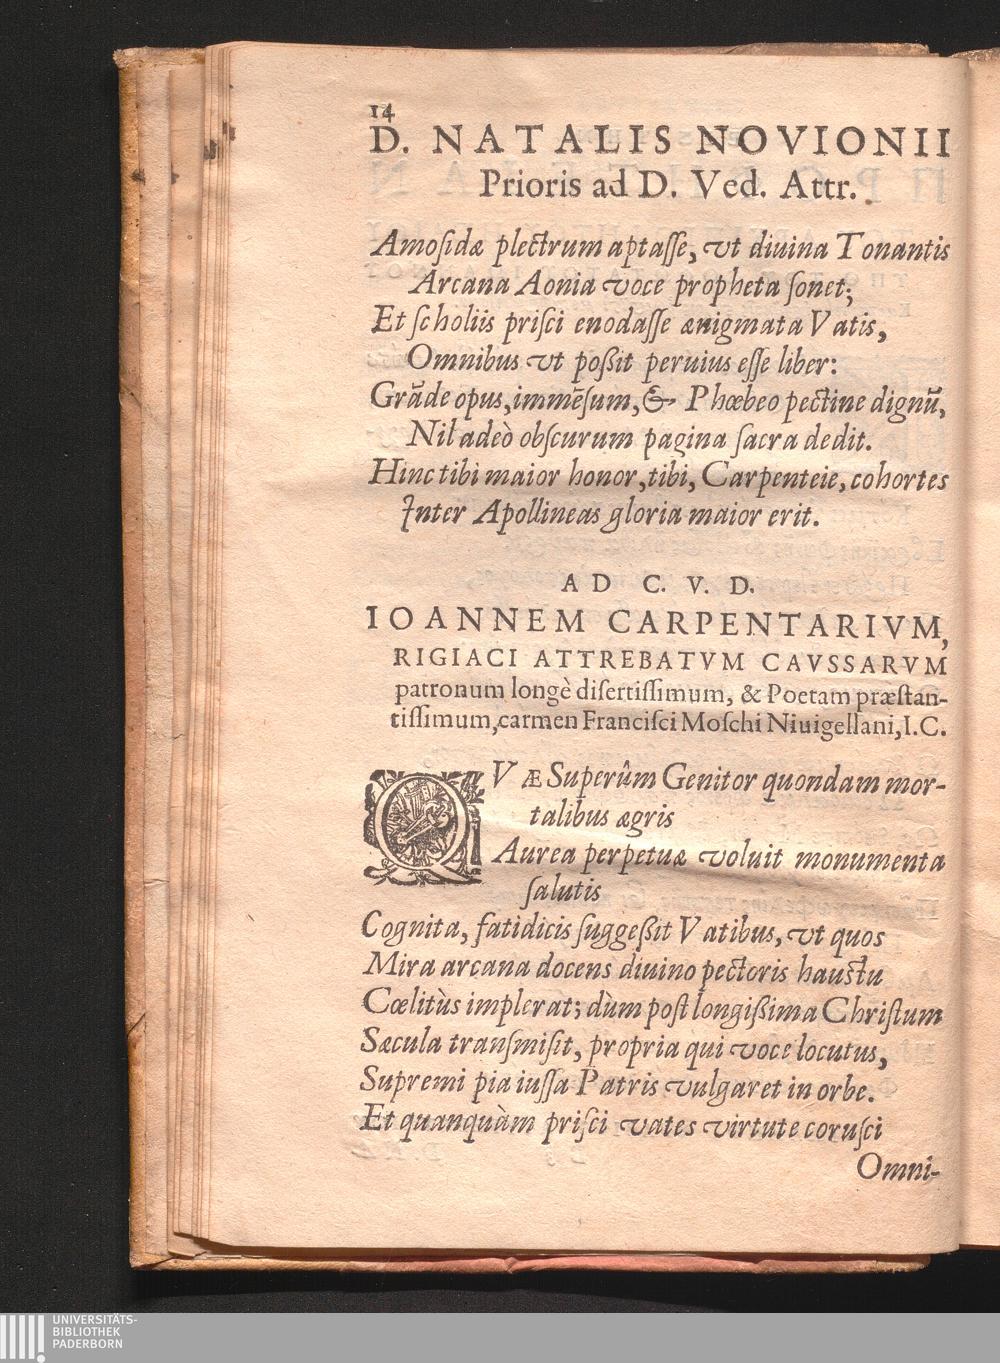 14
D. NATALIS NOVIONII
Prioris ad D. Ved. Attr.
Amoſidæ plectrum aptaſſe, vt diuina Tonantis
Arcana Aonia voce propheta ſonet;
Et ſcholiis priſci enodaſſe ænigmata Vatis,
Omnibus vt poßit peruius eſſe liber:
Grãde opus, immẽſum, & Phœbeo pectine dignũ,
Nil adeò obſcurum pagina ſacra dedit.
Hinc tibi maior honor, tibi, Carpenteie, cohortes
Inter Apollineas gloria maior erit.
AD C. V. D.
IOANNEM CARPENTARIVM,
RIGIACI ATTREBATVM CAVSSARVM
patronum longè diſertiſſimum, & Poetam præſtan-
tiſſimum, carmen Franciſci Moſchi Niuigellani, I.C.
QVÆ Superûm Genitor quondam mor-
talibus ægris
Aurea perpetuæ voluit monumenta
ſalutis
Cognita, fatidicis ſuggeßit Vatibus, vt quos
Mira arcana docens diuino pectoris hauſtu
Cœlitùs implerat; dùm poſt longißima Chriſtum
Sæcula tranſmiſit, propria qui voce locutus,
Supremi pia iuſſa Patris vulgaret in orbe.
Et quanquàm priſci vates virtute coruſci
Omni-
UNIVERSITÄTS-
BIBLIOTHEK
PADERBORN